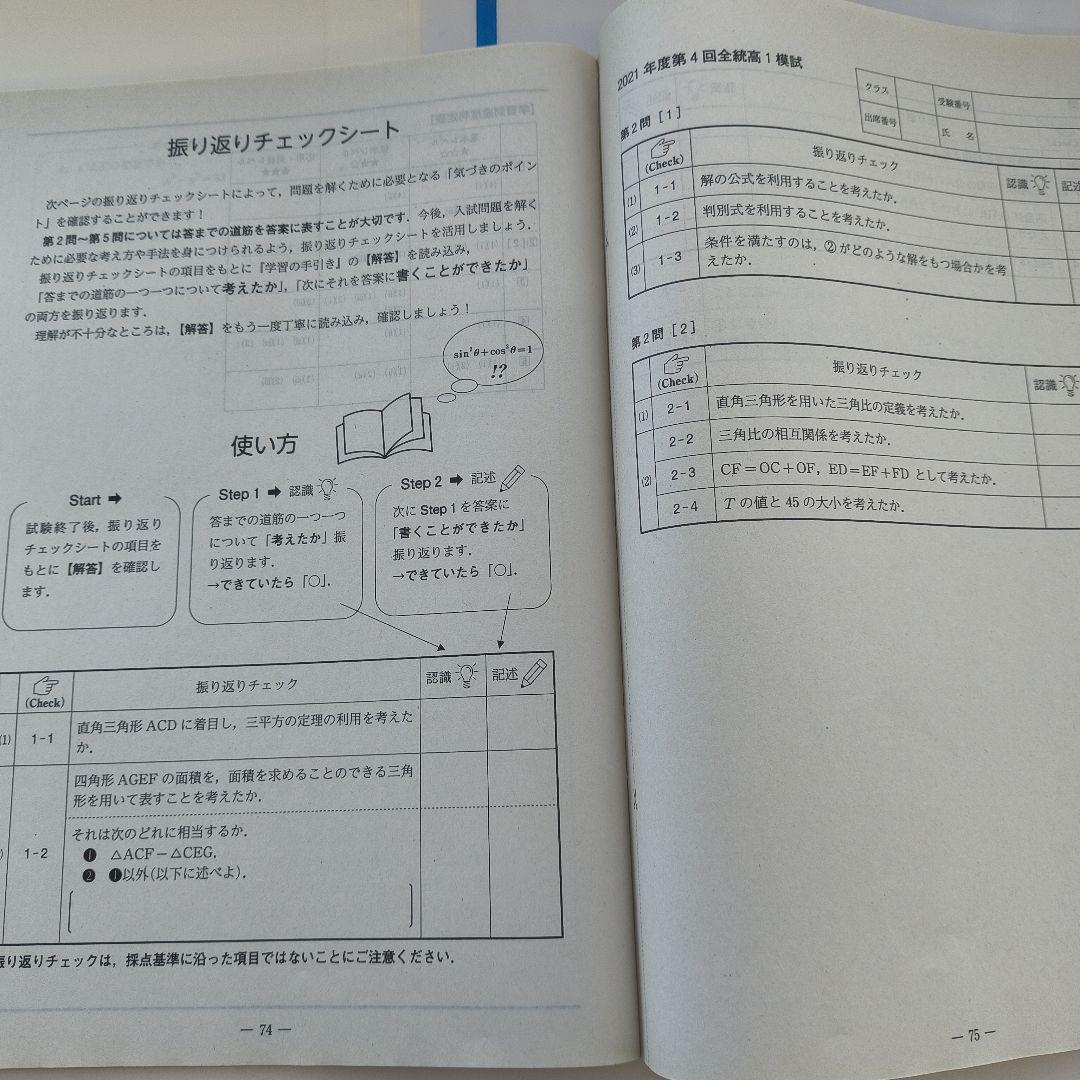 振り返りチェックシート
次ページの振り返りチェックシートによって，問題を解くために必要となる「気づきのポイン
ト」を確認することができます！
第２問～第５問については答までの道筋を答案に表すことが大切です．今後，入試問題を解く
ために必要な考え方や手法を身につけられるよう，振り返りチェックシートを活用しましょう．
振り返りチェックシートの項目をもとに『学習の手引き』の【解答】を読み込み，
「答までの道筋の一つ一つについて考えたか」，「次にそれを答案に書くことができたか」
の両方を振り返ります．
理解が不十分なところは，【解答】をもう一度丁寧に読み込み，確認しましょう！
sin²θ＋cos²θ＝1
!?
使い方
Start ➡
試験終了後，振り返り
チェックシートの項目を
もとに【解答】を確認し
ます．
Step 1 ➡ 認識
答までの道筋の一つ一つ
について「考えたか」振
り返ります．
→できていたら「○」．
Step 2 ➡ 記述
次に Step 1 を答案に
「書くことができたか」
振り返ります．
→できていたら「○」．
(Check) 振り返りチェック 認識 記述
(1) 1-1 直角三角形 ACD に着目し，三平方の定理の利用を考えた
か．
1-2 四角形 AGEF の面積を，面積を求めることのできる三角
形を用いて表すことを考えたか．
それは次のどれに相当するか．
❶ △ACF－△CEG．
❷ ❶以外(以下に述べよ)．
振り返りチェックは，採点基準に沿った項目ではないことにご注意ください．
— 74 —
2021 年度第 4 回全統高 1 模試
クラス 受験番号
出席番号 氏 名
第２問［１］
(Check) 振り返りチェック 認識 記述
(1) 1-1 解の公式を利用することを考えたか．
(2) 1-2 判別式を利用することを考えたか．
(3) 1-3 条件を満たすのは，②がどのような解をもつ場合かを考
えたか．
第２問［２］
(Check) 振り返りチェック 認識
(1) 2-1 直角三角形を用いた三角比の定義を考えたか．
(2) 2-2 三角比の相互関係を考えたか．
2-3 CF＝OC＋OF，ED＝EF＋FD として考えたか．
2-4 T の値と 45 の大小を考えたか．
— 75 —